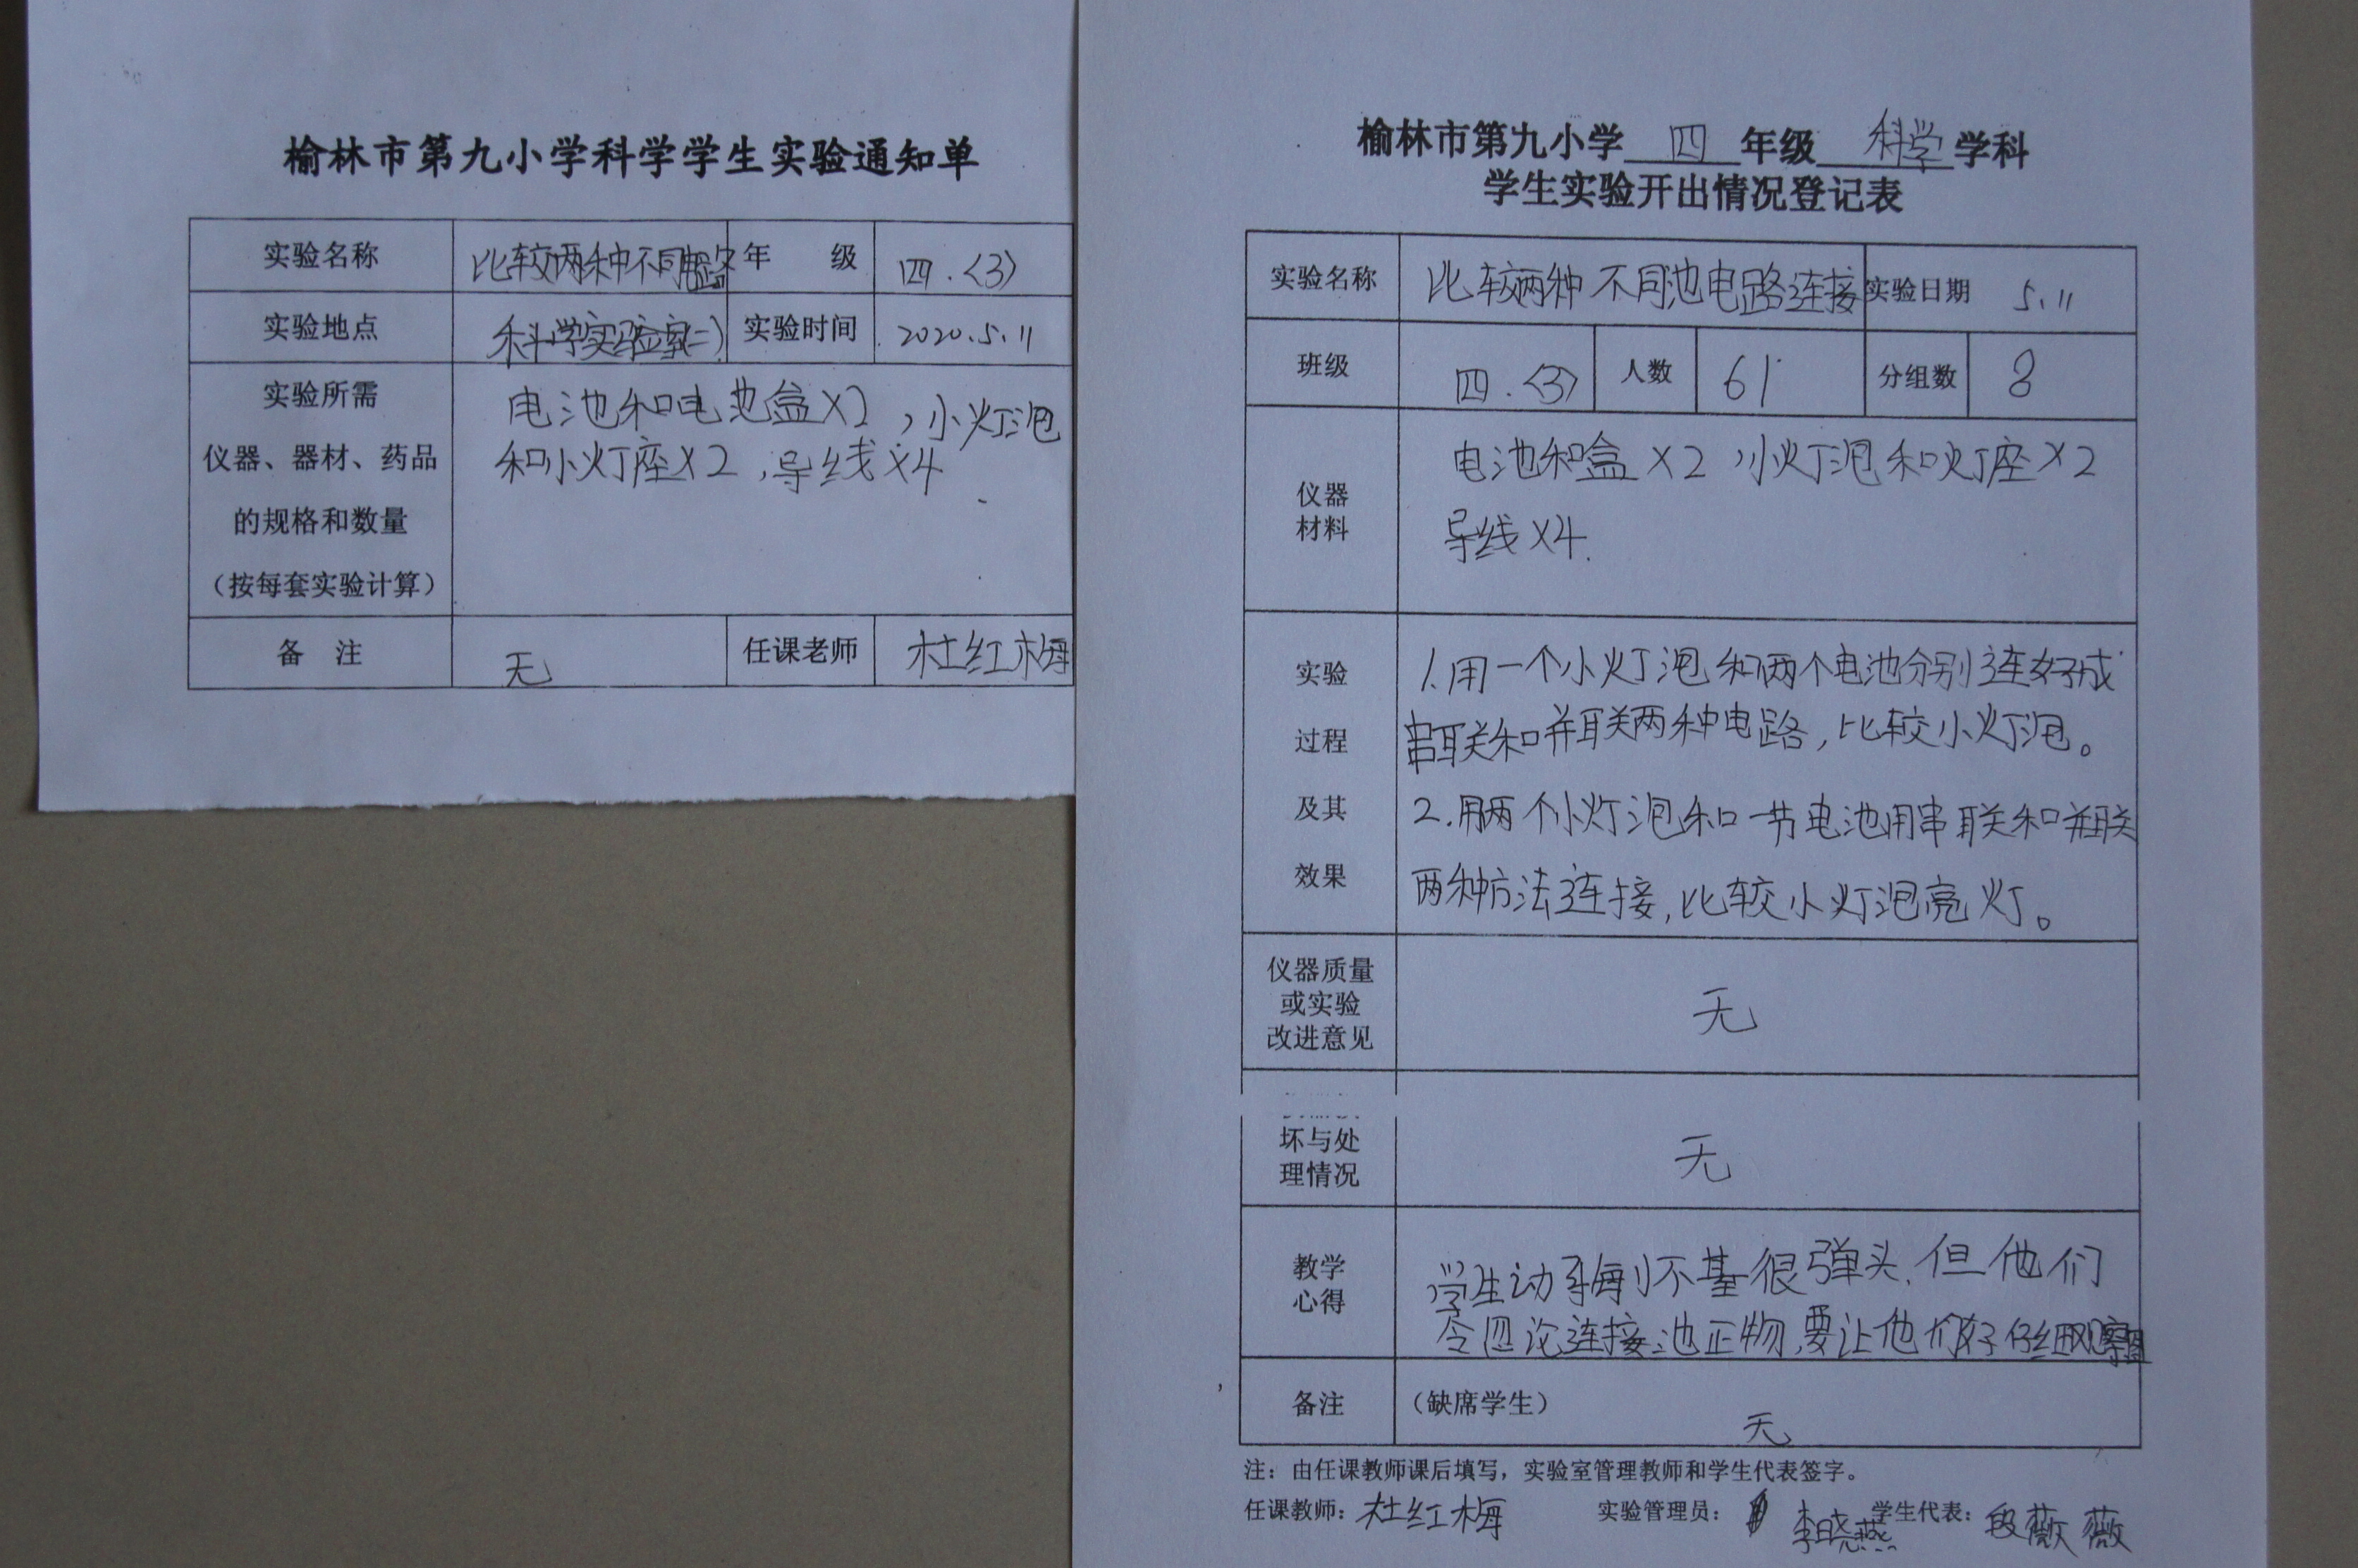 榆林市第九小学科学学生实验通知单
实验名称 比较两种不同电路 年 级 四.<3>
实验地点 科学实验室(二) 实验时间 2020.5.11
实验所需
仪器、器材、药品
的规格和数量
（按每套实验计算）
电池和电池盒×2，小灯泡
和小灯座×2，导线×4
备 注 无 任课老师 杜红梅
榆林市第九小学 四 年级 科学 学科
学生实验开出情况登记表
实验名称 比较两种不同池电路连接 实验日期 5.11
班级 四.<3> 人数 61 分组数 8
仪器
材料
电池和盒×2，小灯泡和灯座×2
导线×4.
实验
过程
及其
效果
1.用一个小灯泡和两个电池分别连好成
串联和并联两种电路，比较小灯泡。
2.用两个小灯泡和一节电池用串联和并联
两种方法连接，比较小灯泡亮灯。
仪器质量
或实验
改进意见
无
坏与处
理情况
无
教学
心得
学生动 不 很 但他们
连接池正物，要让他们好仔细观察
备注 （缺席学生）
无
注：由任课教师课后填写，实验室管理教师和学生代表签字。
任课教师：杜红梅 实验管理员：李晓燕 学生代表：段薇薇